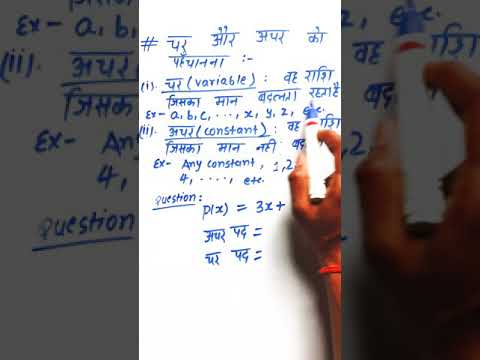 # चर और अचर को
पहचानना :-
(i). चर (variable) : वह राशि
जिसका मान बदलता रहता है
Ex- a, b, c, ..., x, y, z, etc.
(ii). अचर (constant) : वह राशि
जिसका मान नहीं
Ex- Any constant, 1, 2,
4, ....., etc.
Question:
P(x) = 3x+
अचर पद =
चर पद =